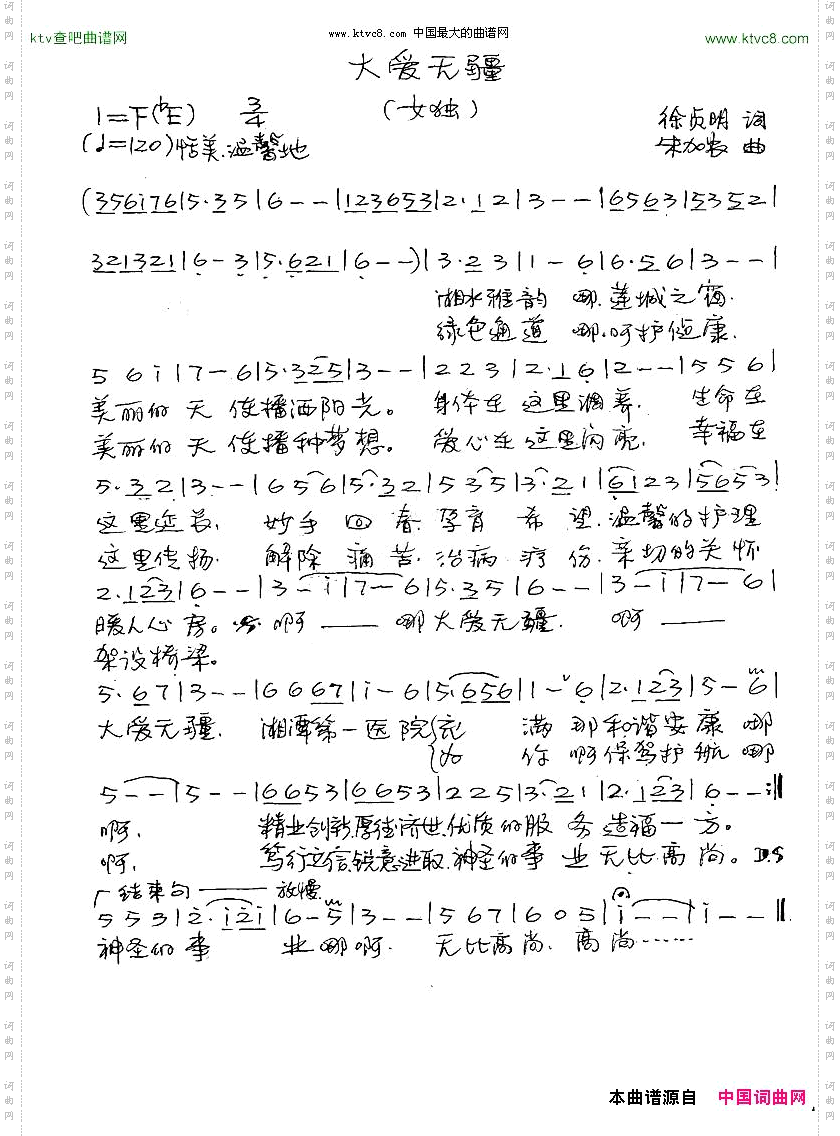 www.ktvc8.com 中国最大的曲谱网
ktv查吧曲谱网
www.ktvc8.com
大爱无疆
(女独)
1=F(♭E) 3/4
徐贞明 词
(♩=120)恬美.温馨地
朱加农 曲
(356i76|5·35|6--|123653|2·12|3--|6563|53521|
321321|6-3|5·621|6--)|3·23|1-6|6·56|3--|
湘水雅韵 哪.莲城之窗.
绿色通道 哪.呵护健康.
56i|7-6|5·325|3--|223|2·16|2--|556|
美丽的天使播洒阳光。 身体在这里调养. 生命在
美丽的天使播种梦想。 爱心在这里闪亮. 幸福在
5·32|3--|6056|5·32|535|3·21|6123|5653|
这里延长. 妙手回春.孕育希望.温馨的护理
这里传扬. 解除痛苦.治病疗伤.亲切的关怀
2·123|6--|3-i|7-6|5·35|6--|3-i|7-6|
暖人心房。 啊—— 哪大爱无疆. 啊——
架设桥梁。
5·67|3--|6667|i-6|5·656|1-6|2·123|5-6|
大爱无疆. 湘潭第一医院 满那和谐安康哪
你啊保驾护航哪
5--|5--|6653|6653|225|3·21|2·123|6--:‖
啊. 精业创新.厚德济世.优质的服务造福一方。
啊. 笃行立信.锐意进取.神圣的事业无比高尚。D.S
结束句—— 放慢
553|2·i2i|6-5|3--|567|605|i--|i--‖
神圣的事 业哪啊. 无比高尚.高尚……
本曲谱源自 中国词曲网
词曲网